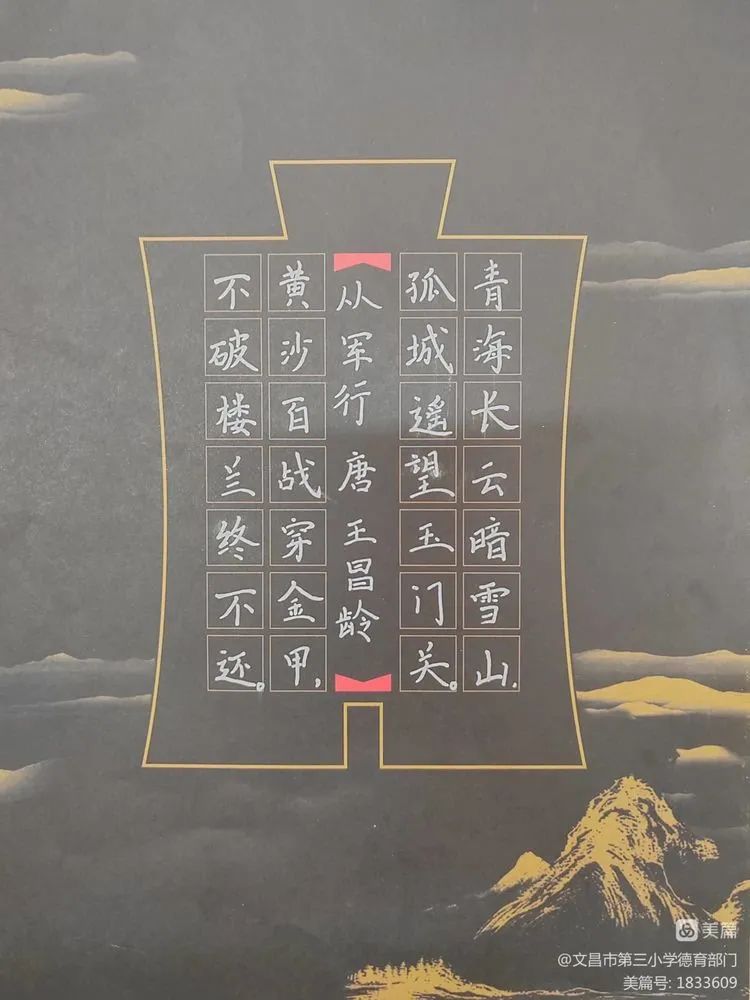 青海长云暗雪山,
孤城遥望玉门关。
从军行 唐 王昌龄
黄沙百战穿金甲,
不破楼兰终不还。
美篇
@文昌市第三小学德育部门
美篇号: 1833609